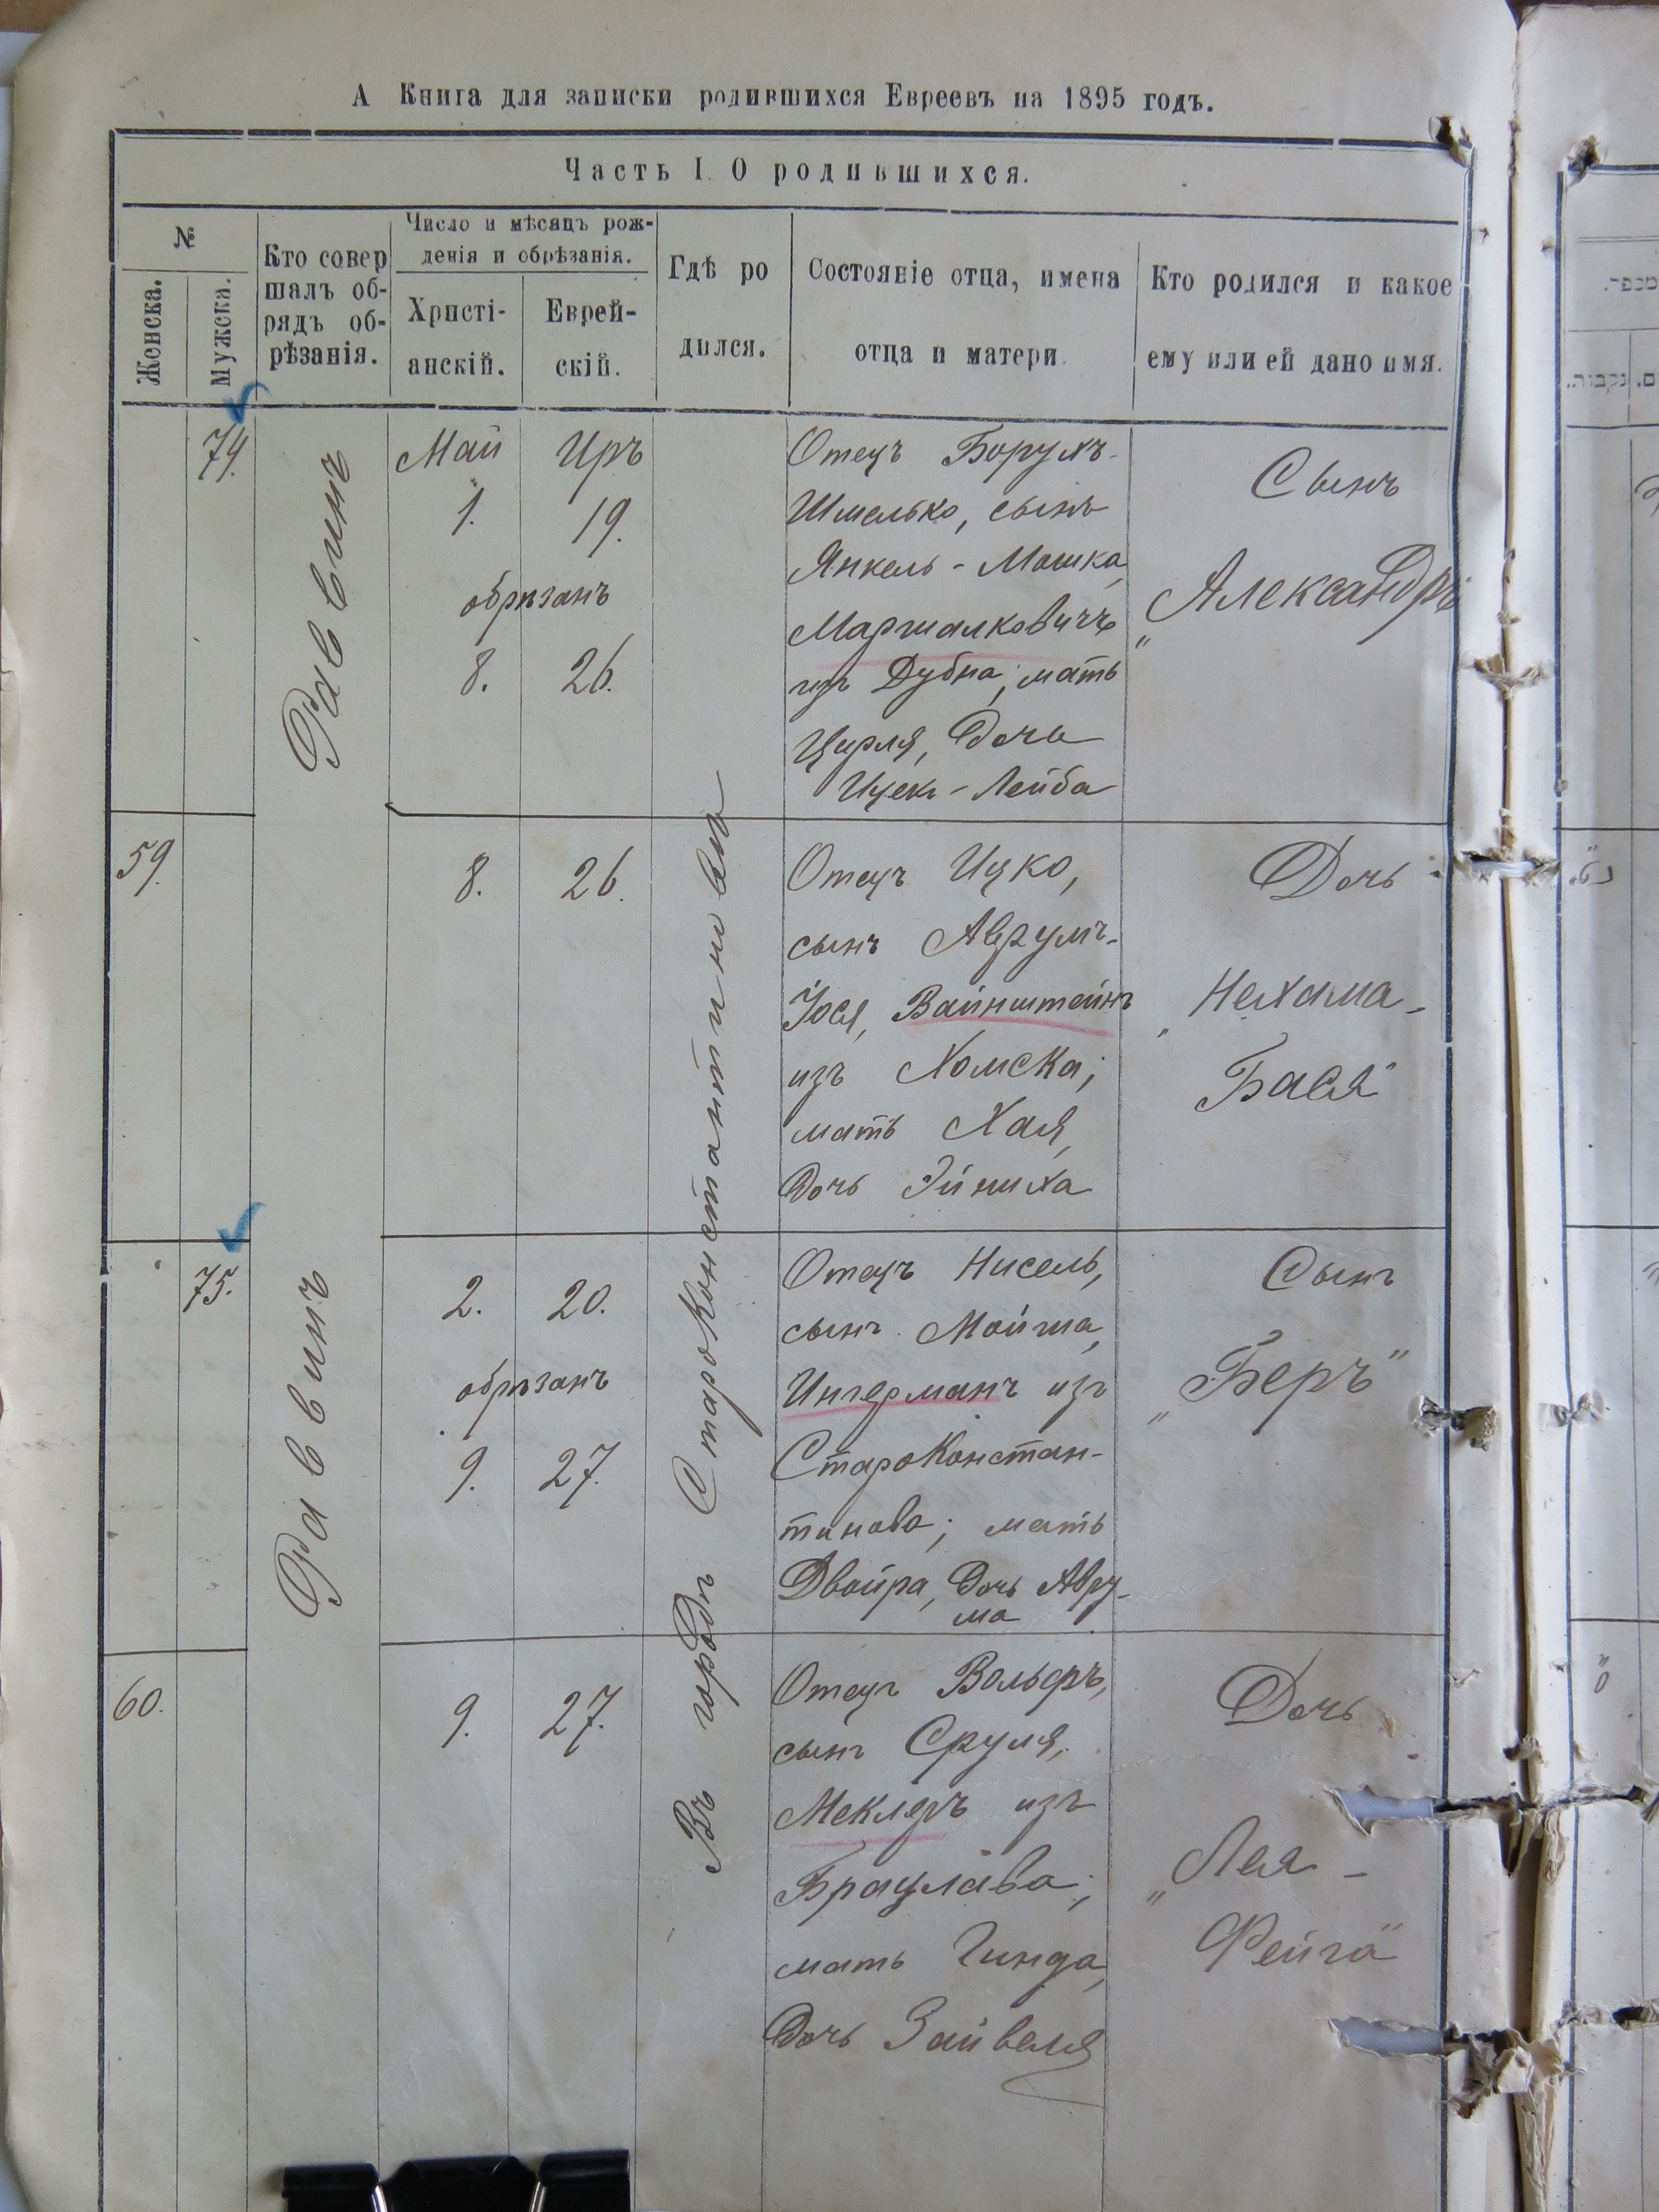 А Книга для записки родившихся Евреевъ на 1895 годъ.
Часть I. О родившихся.
№
Женска.
Мужска.
Кто совер
шалъ об-
рядъ об-
рѣзанія.
Число и мѣсяцъ рож-
денія и обрѣзанія.
Христі-
анскій.
Еврей-
скій.
Гдѣ ро
дился.
Состояніе отца, имена
отца и матери.
Кто родился и какое
ему или ей дано имя.
74.
Раввинъ
Май
1.
Иръ
19.
обрѣзанъ
8.
26.
Въ городѣ Староконстантиновѣ
Отецъ Борухъ-
Шмелько, сынъ
Янкель-Мошка,
Маршалковичъ
изъ Дубна; мать
Цирля, дочь
Ицекъ-Лейба
Сынъ
„Александръ
59.
8.
26.
Отецъ Ицко,
сынъ Аврумъ-
Іося, Вайнштейнъ
изъ Хомска;
мать Хая,
дочь Эйниха
Дочь
„Нехама-
Бася"
75.
Раввинъ
2.
20.
обрѣзанъ
9.
27.
Отецъ Нисель,
сынъ Мойша,
Ингерманъ изъ
Староконстан-
тинова; мать
Двойра, дочь Авру-
ма
Сынъ
„Беръ"
60.
9.
27.
Отецъ Вольфъ,
сынъ Сруля,
Меклеръ изъ
Брацлава;
мать Гинда,
дочь Зайвеля
Дочь
„Лея-
Фейга"